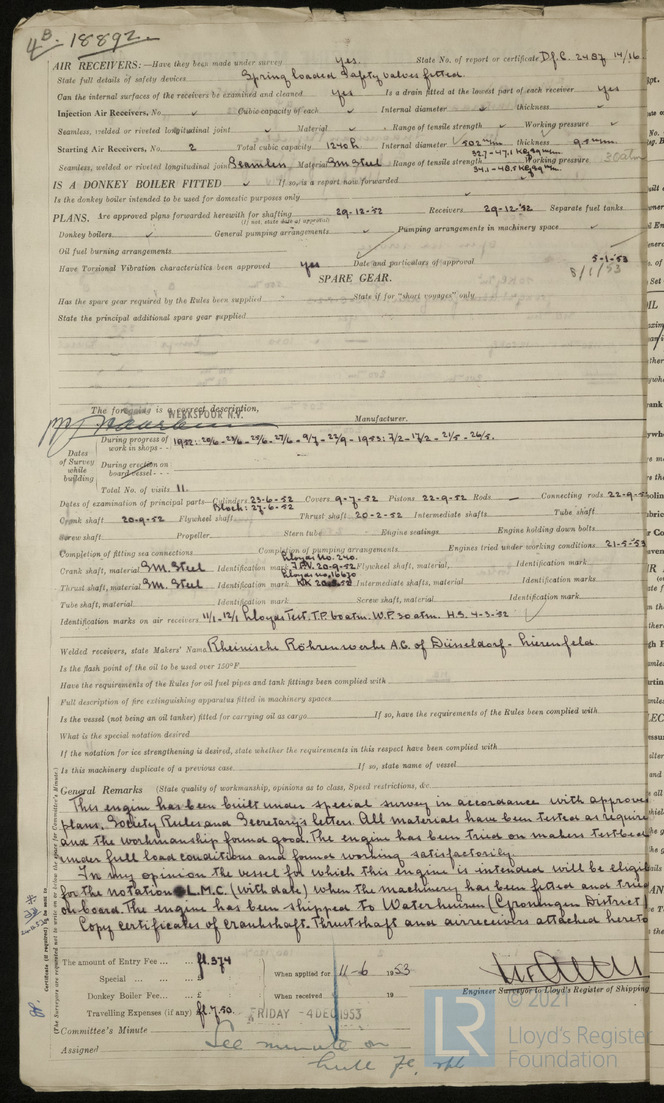 4B. 18892.
AIR RECEIVERS:—Have they been made under survey yes. State No. of report or certificate D.f.C. 2487 14/16
State full details of safety devices Spring loaded Safety valves fitted.
Can the internal surfaces of the receivers be examined and cleaned yes Is a drain fitted at the lowest part of each receiver yes
Injection Air Receivers, No. ✓ Cubic capacity of each ✓ Internal diameter ✓ thickness ✓
Seamless, welded or riveted longitudinal joint ✓ Material ✓ Range of tensile strength ✓ Working pressure ✓
Starting Air Receivers, No. 2 Total cubic capacity 1240 l. Internal diameter 502 mm thickness 9.5 mm.
Seamless, welded or riveted longitudinal joint Seamless Material S.M. Steel Range of tensile strength 32.7-47.1 Kg/qmm. 34.1-48.5 Kg/qmm. Working pressure 30atm
IS A DONKEY BOILER FITTED ✓ If so, is a report now forwarded
Is the donkey boiler intended to be used for domestic purposes only ✓
PLANS. Are approved plans forwarded herewith for shafting 29-12-52 Receivers 29-12-52 Separate fuel tanks
(If not, state date of approval)
Donkey boilers ✓ General pumping arrangements ✓ Pumping arrangements in machinery space ✓
Oil fuel burning arrangements
Have Torsional Vibration characteristics been approved yes Date and particulars of approval 5-1-53
8/1/53
SPARE GEAR.
Has the spare gear required by the Rules been supplied State if for "short voyages" only
State the principal additional spare gear supplied
The foregoing is a correct description,
WERKSPOOR N.V.
Manufacturer.
Dates of Survey while building
During progress of work in shops - - 1952: 20/6 - 23/6 - 25/6 - 27/6 - 9/7 - 22/9 - 1953: 7/2 - 17/2 - 21/5 - 26/5.
During erection on board vessel - - -
Total No. of visits 11.
Dates of examination of principal parts—Cylinders 23-6-52 Covers 9-7-52 Pistons 22-9-52 Rods — Connecting rods 22-9-5
Block: 27-6-52
Crank shaft 20-9-52 Flywheel shaft Thrust shaft 20-2-52 Intermediate shafts Tube shaft
Screw shaft Propeller Stern tube Engine seatings Engine holding down bolts
Completion of fitting sea connections Completion of pumping arrangements Engines tried under working conditions 21-5-53
Crank shaft, material S.M. Steel Identification mark Lloyds No. 240. 20-9-52 Flywheel shaft, material Identification mark
Thrust shaft, material S.M. Steel Identification mark Lloyds no, 16630 Intermediate shafts, material Identification marks
Tube shaft, material Identification mark Screw shaft, material Identification mark
Identification marks on air receivers 11/1 - 12/1 Lloyds Test. T.P. 60atm. W.P. 30 atm. H.S. 4-3-52
Welded receivers, state Makers' Name Rheinische Röhrenwerke A.G. of Düsseldorf - Lierenfeld.
Is the flash point of the oil to be used over 150°F.
Have the requirements of the Rules for oil fuel pipes and tank fittings been complied with
Full description of fire extinguishing apparatus fitted in machinery spaces
Is the vessel (not being an oil tanker) fitted for carrying oil as cargo If so, have the requirements of the Rules been complied with
What is the special notation desired
If the notation for ice strengthening is desired, state whether the requirements in this respect have been complied with
Is this machinery duplicate of a previous case If so, state name of vessel
General Remarks (State quality of workmanship, opinions as to class, Speed restrictions, &c.
This engine has been built under special survey in accordance with approve
plans, Society Rules and Secretary's letters. All materials have been tested as require
and the workmanship found good. The engine has been tried on makers testbed
under full load conditions and found working satisfactorily.
In my opinion the vessel for which this engine is intended will be eligib
for the notation L.M.C. (with date) when the machinery has been fitted and tried
on board. The engine has been shipped to Waterhuizen (Groningen District)
Copy certificates of crankshaft, Thrust shaft and air receivers attached hereto
The amount of Entry Fee ... fl. 574
Special ... £
Donkey Boiler Fee... £
Travelling Expenses (if any) fl. 7.50.
When applied for 11-6 1953
When received 19
Engineer Surveyor to Lloyd's Register of Shipping
Committee's Minute FRIDAY - 4 DEC 1953
Assigned See minute on
hull Fe. rpt
Certificate (if required) to be sent to
(The Surveyors are requested not to write on or below the space for Committee's Minute.)
LR © 2021
Lloyd's Register
Foundation